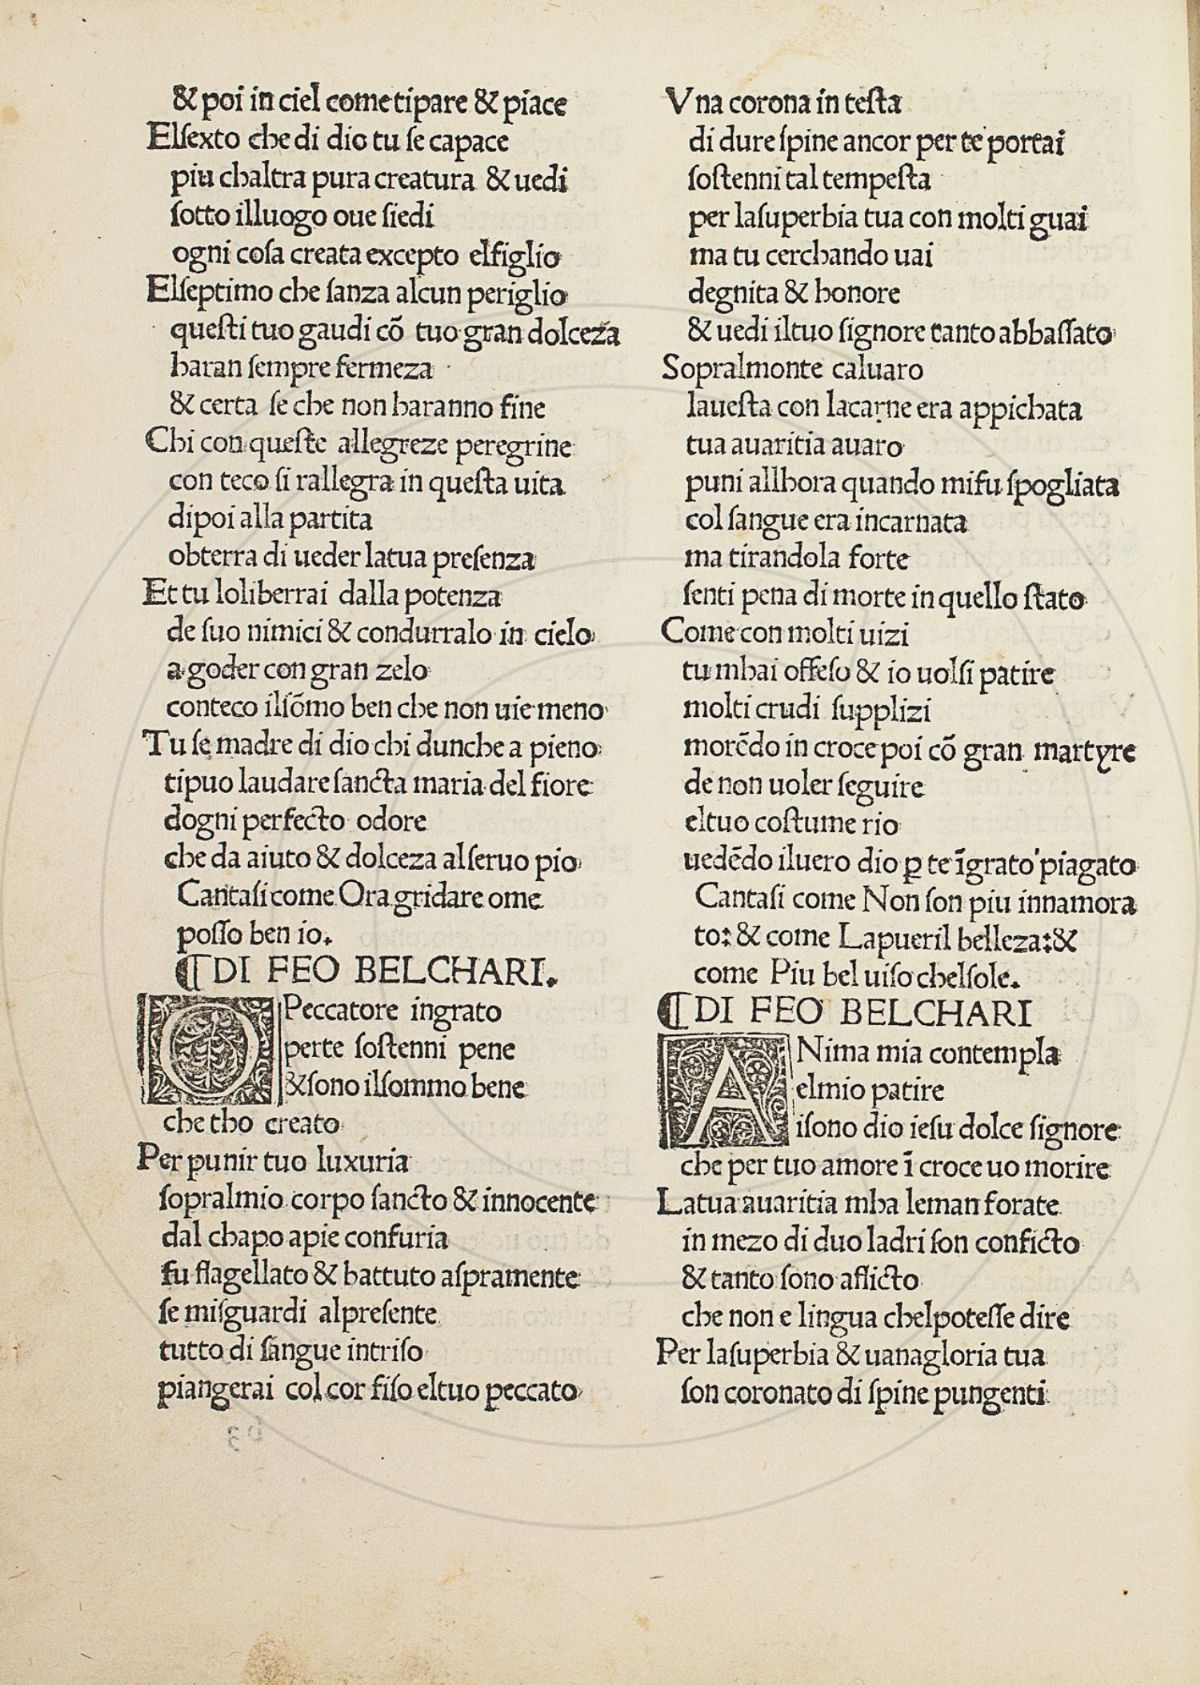 & poi in ciel come tipare & piace
Elſexto che di dio tu ſe capace
piu chaltra pura creatura & uedi
ſotto illuogo oue ſiedi
ogni coſa creata excepto elfiglio
Elſeptimo che ſanza alcun periglio
queſti tuo gaudi cõ tuo gran dolceza
haran ſempre fermeza
& certa ſe che non haranno fine
Chi con queſte allegreze peregrine
con teco ſi rallegra in queſta uita
dipoi alla partita
obterra di ueder latua preſenza
Et tu loliberrai dalla potenza
de ſuo nimici & condurralo in cielo
a goder con gran zelo
conteco ilſõmo ben che non uie meno
Tu ſe madre di dio chi dunche a pieno
tipuo laudare ſancta maria del fiore
dogni perfecto odore
che da aiuto & dolceza alſeruo pio
Cantaſi come Ora gridare ome
poſſo ben io.
¶ DI FEO BELCHARI.
O Peccatore ingrato
perte ſoſtenni pene
& ſono ilſommo bene
che tho creato
Per punir tuo luxuria
ſopralmio corpo ſancto & innocente
dal chapo apie confuria
fu flagellato & battuto aſpramente
ſe miſguardi alpreſente
tutto di ſangue intriſo
piangerai col cor fiſo eltuo peccato
Vna corona in teſta
di dure ſpine ancor per te portai
ſoſtenni tal tempeſta
per laſuperbia tua con molti guai
ma tu cerchando uai
degnita & honore
& uedi iltuo ſignore tanto abbaſſato
Sopralmonte caluaro
laueſta con lacarne era appichata
tua auaritia auaro
puni allhora quando mifu ſpogliata
col ſangue era incarnata
ma tirandola forte
ſenti pena di morte in quello ſtato
Come con molti uizi
tu mhai offeſo & io uolſi patire
molti crudi ſupplizi
morẽdo in croce poi cõ gran martyre
de non uoler ſeguire
eltuo coſtume rio
uedẽdo iluero dio ꝑ te ĩgrato piagato
Cantaſi come Non ſon piu innamora
to: & come Lapueril belleza: &
come Piu bel uiſo chelſole.
¶ DI FEO BELCHARI
ANima mia contempla
elmio patire
iſono dio ieſu dolce ſignore
che per tuo amore ĩ croce uo morire
Latua auaritia mha leman forate
in mezo di duo ladri ſon conficto
& tanto ſono aflicto
che non e lingua chelpoteſſe dire
Per laſuperbia & uanagloria tua
ſon coronato di ſpine pungenti